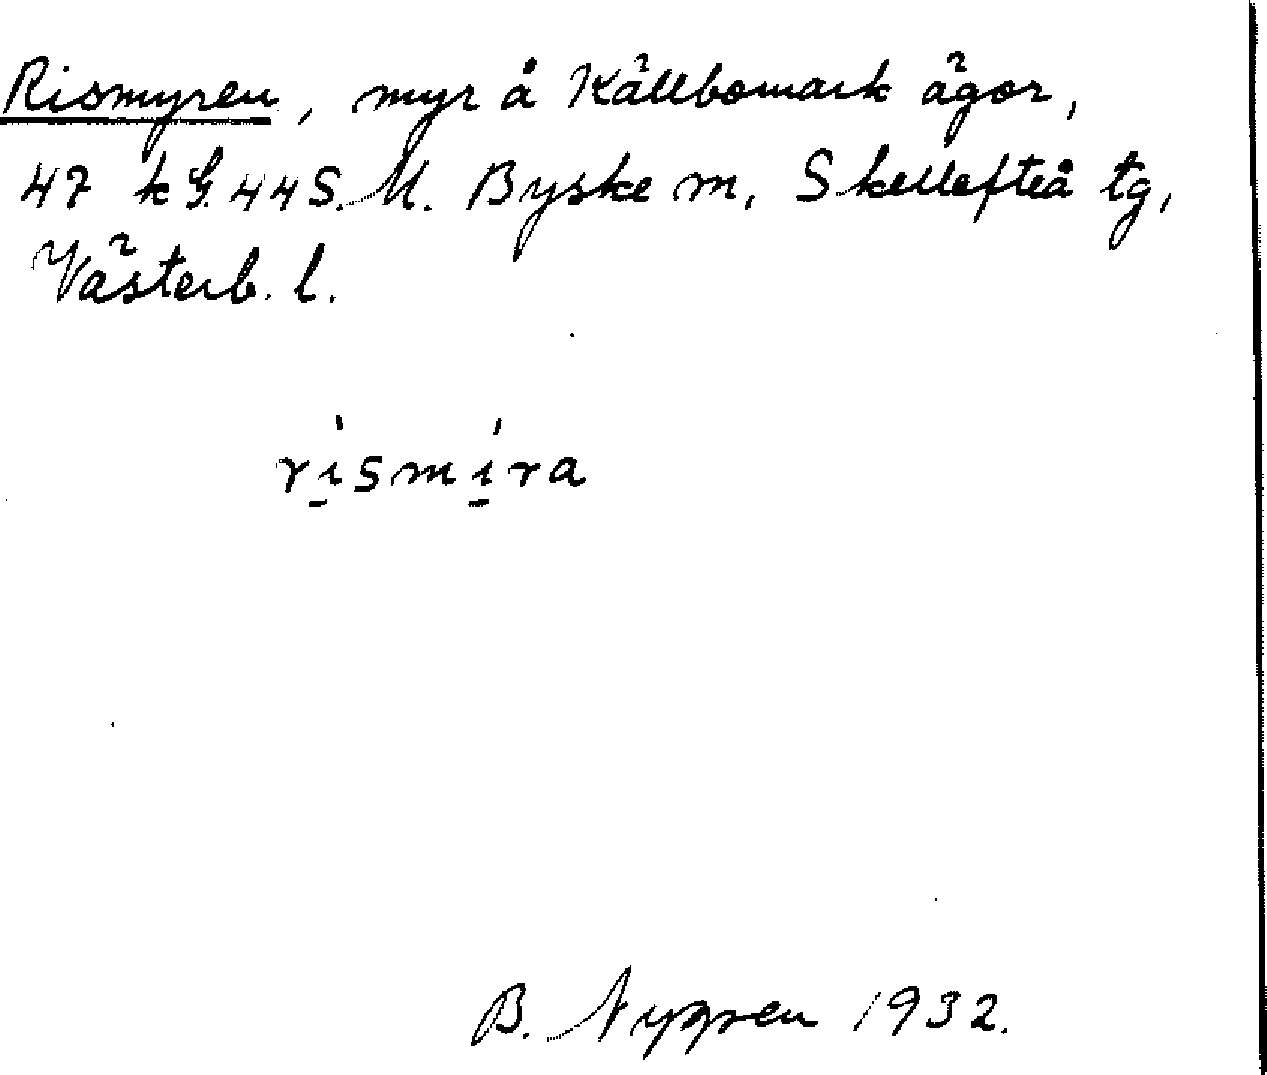 Rismyren, myr å Källbomark ägor,
47 kG. 44 S. M. Byske m, Skellefteå tg,
Västerb. l.
ri̱̍smi̱̍ra
B. Nygren 1932.